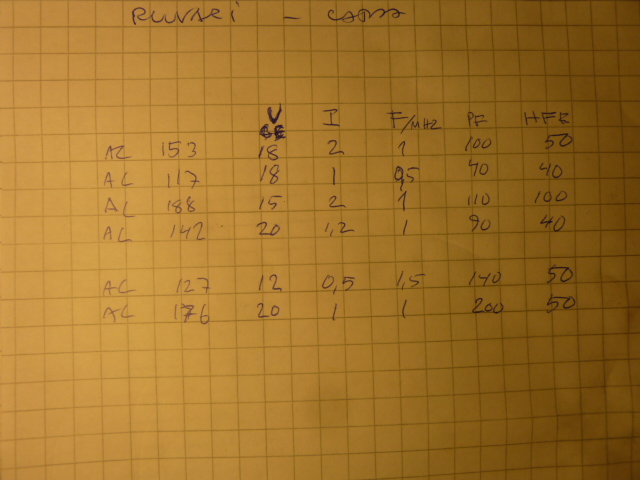 V I F/MHZ PF HFE
CE
AC 153 18 2 1 100 50
AC 117 18 1 0,5 70 40
AC 188 15 2 1 110 100
AC 142 20 1,2 1 90 40
AC 127 12 0,5 1,5 140 50
AC 176 20 1 1 200 50